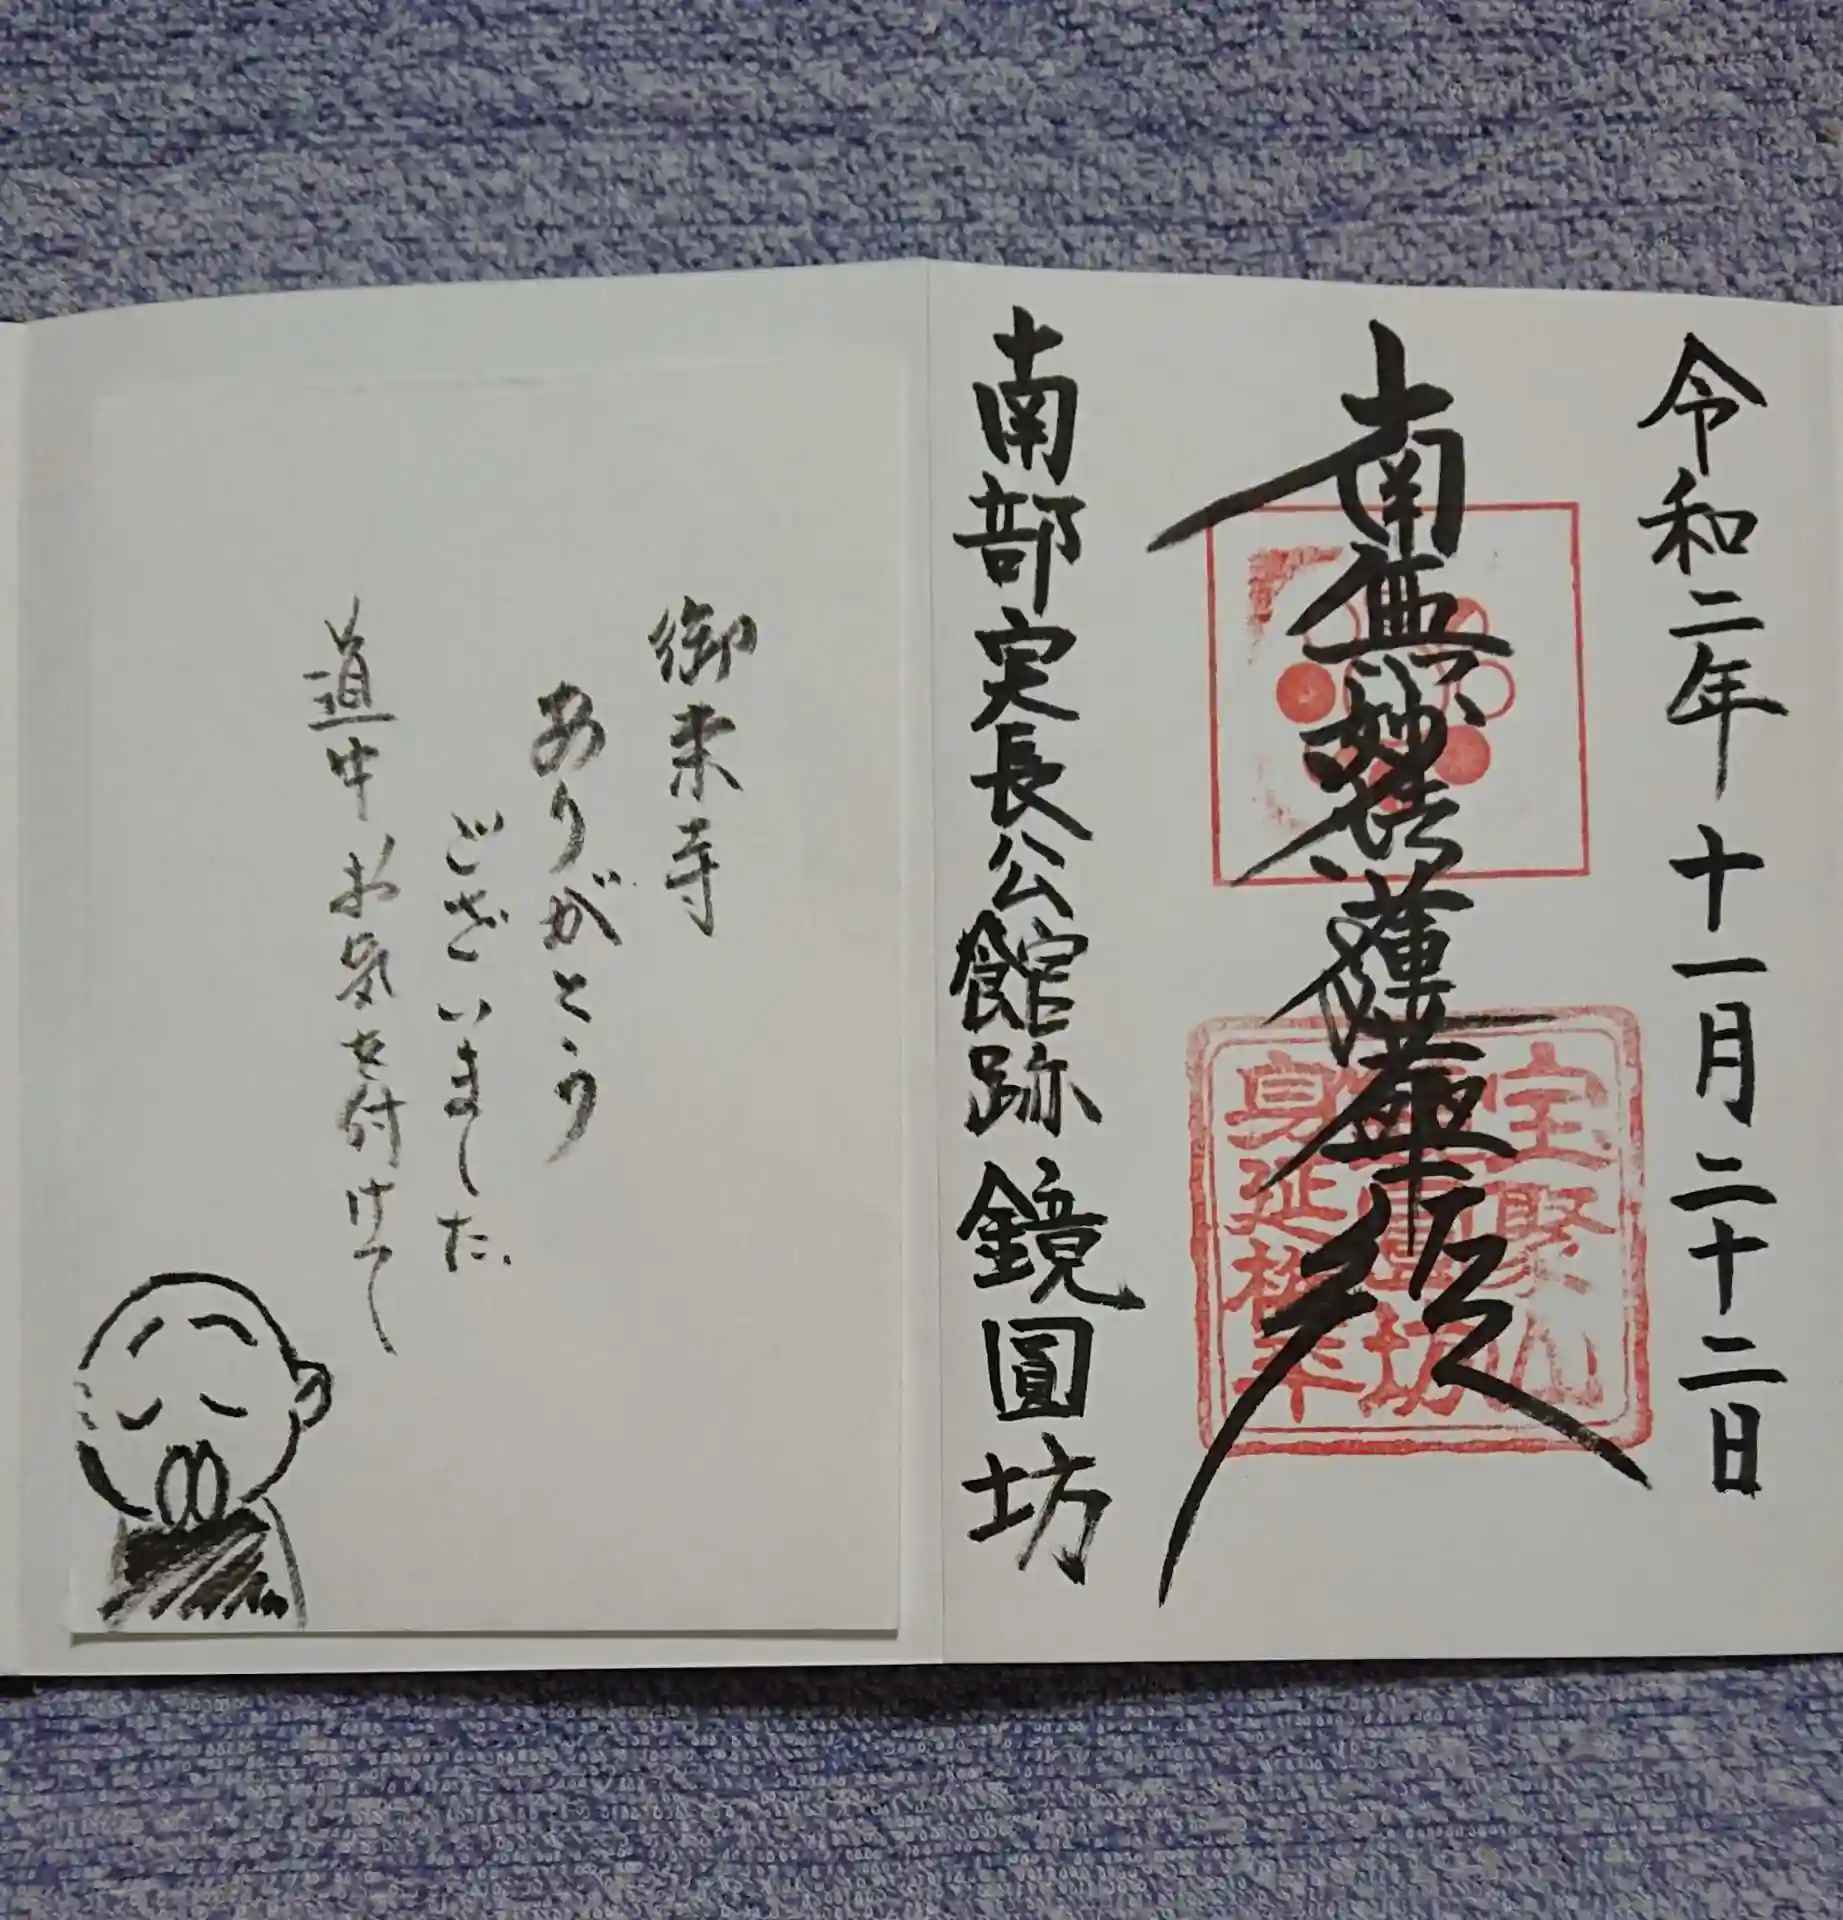 令和二年 十一月二十二日
南無妙法蓮華経
宝聚山
鏡圓坊
身延梅平
南部実長公館跡 鏡圓坊
御来寺
ありがとう
ございました.
道中お気を付けて